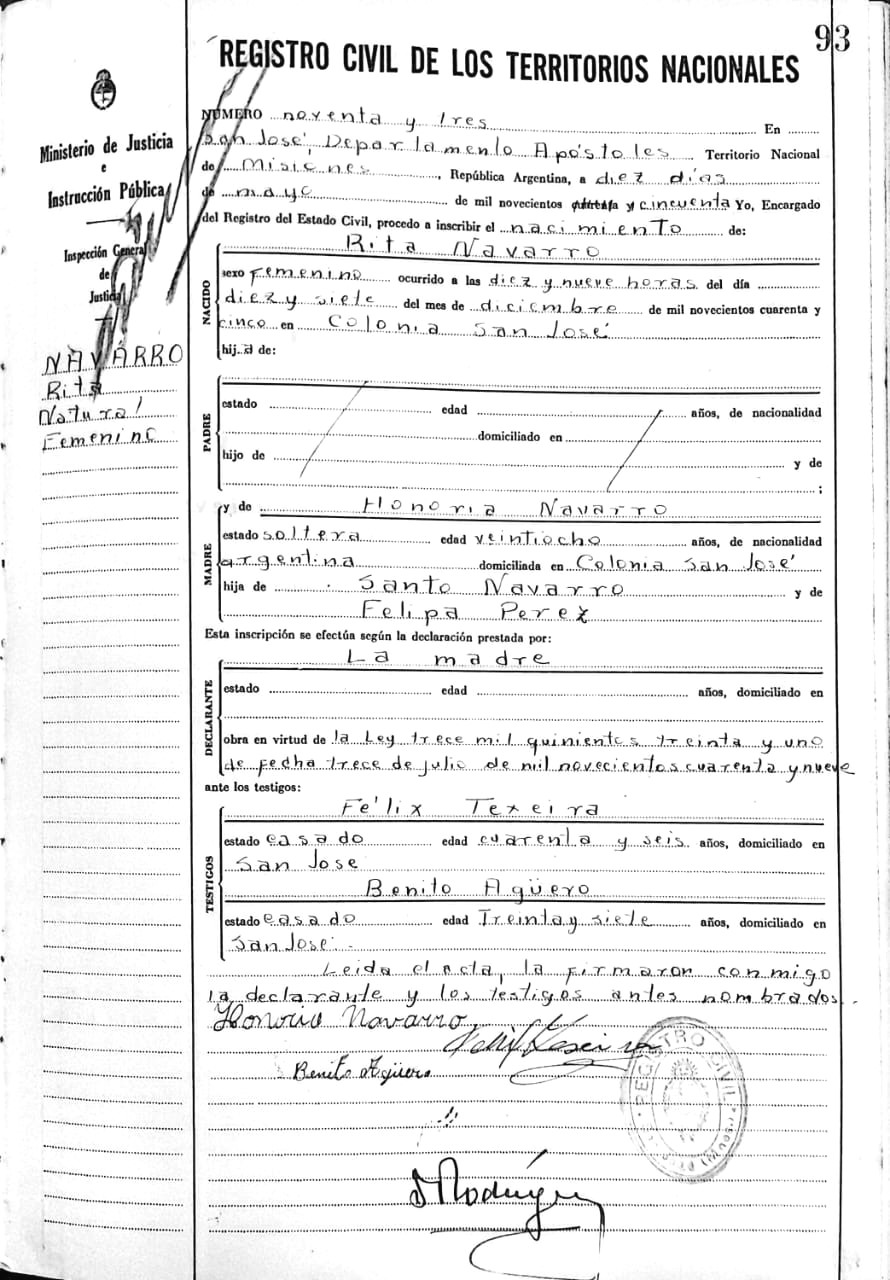 93
REGISTRO CIVIL DE LOS TERRITORIOS NACIONALES
Ministerio de Justicia
e
Instrucción Pública
Inspección General
de
Justicia
NAVARRO
Rita
Natural
Femenino
NÚMERO noventa y tres En
San José, Departamento Apóstoles Territorio Nacional
de Misiones, República Argentina, a diez días
de mayo de mil novecientos cincuenta Yo, Encargado
del Registro del Estado Civil, procedo a inscribir el nacimiento de:
NACIDO
Rita Navarro
sexo Femenino ocurrido a las diez y nueve horas del día
diez y siete del mes de diciembre de mil novecientos cuarenta y
cinco en Colonia San José
hija de:
PADRE
estado edad años, de nacionalidad
domiciliado en
hijo de y de
;
MADRE
y de Honoria Navarro
estado soltera edad veintiocho años, de nacionalidad
argentina domiciliada en Colonia San José
hija de Santo Navarro y de
Felipa Perez
Esta inscripción se efectúa según la declaración prestada por:
DECLARANTE
La madre
estado edad años, domiciliado en
obra en virtud de la Ley trece mil quinientos treinta y uno
de fecha trece de julio de mil novecientos cuarenta y nueve
ante los testigos:
TESTIGOS
Félix Texeira
estado casado edad cuarenta y seis años, domiciliado en
San Jose
Benito Agüero
estado casado edad Treinta y siete años, domiciliado en
San José.
Leida el acta, la firmaron conmigo
la declarante y los testigos antes nombrados.
Honoria Navarro
Benito Agüero
REGISTRO CIVIL